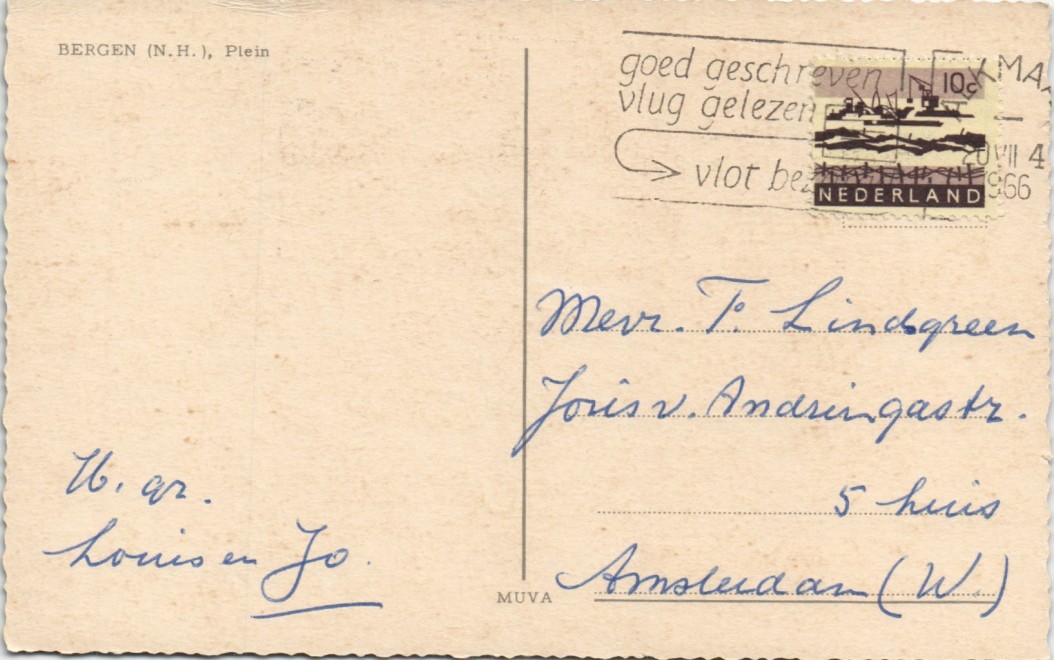 BERGEN (N.H.), Plein
goed geschreven
vlug gelezen
vlot
10c
NEDERLAND
20 VII 4
1966
Mevr. T. Lindgreen
Joris v. Andringastr.
5 huis
Amsterdam (W.)
H. gr.
Louis en Jo.
MUVA